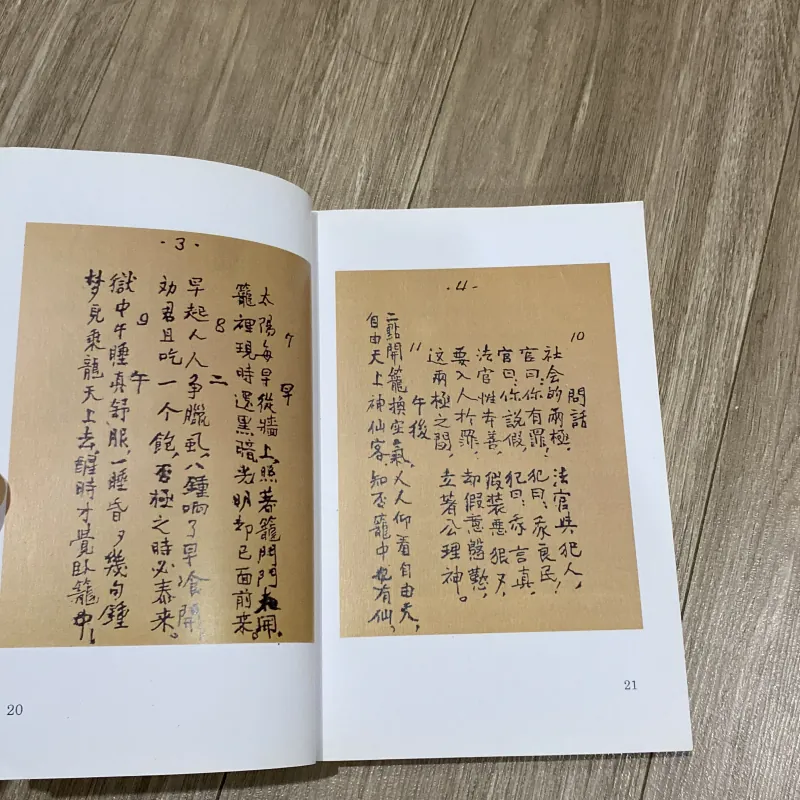 -3-
7 早
太陽每早從牆上照著籠門,門未開。
籠裡現時還黑暗,光明却已面前來。
8 二
早起人人爭臘風,八鐘响了早飡開,
劝君且吃一个飽,否極之時必泰來。
9 午
獄中午睡真舒服,一睡昏夕幾句鐘
梦見乘龍天上去,醒時才覺臥籠中。
20
-4-
10 問話
社会的兩極,法官與犯人,
官曰:你有罪!犯曰:我良民!
官曰:你說假,犯曰:我言真,
法官性本善,假裝惡狠夕,
要入人於罪,却假意慇懃,
這兩極之間,立著公理神。
11 午後
二點開籠換空氣,人人仰看自由天,
自由天上神仙客,知否籠中也有仙,
21